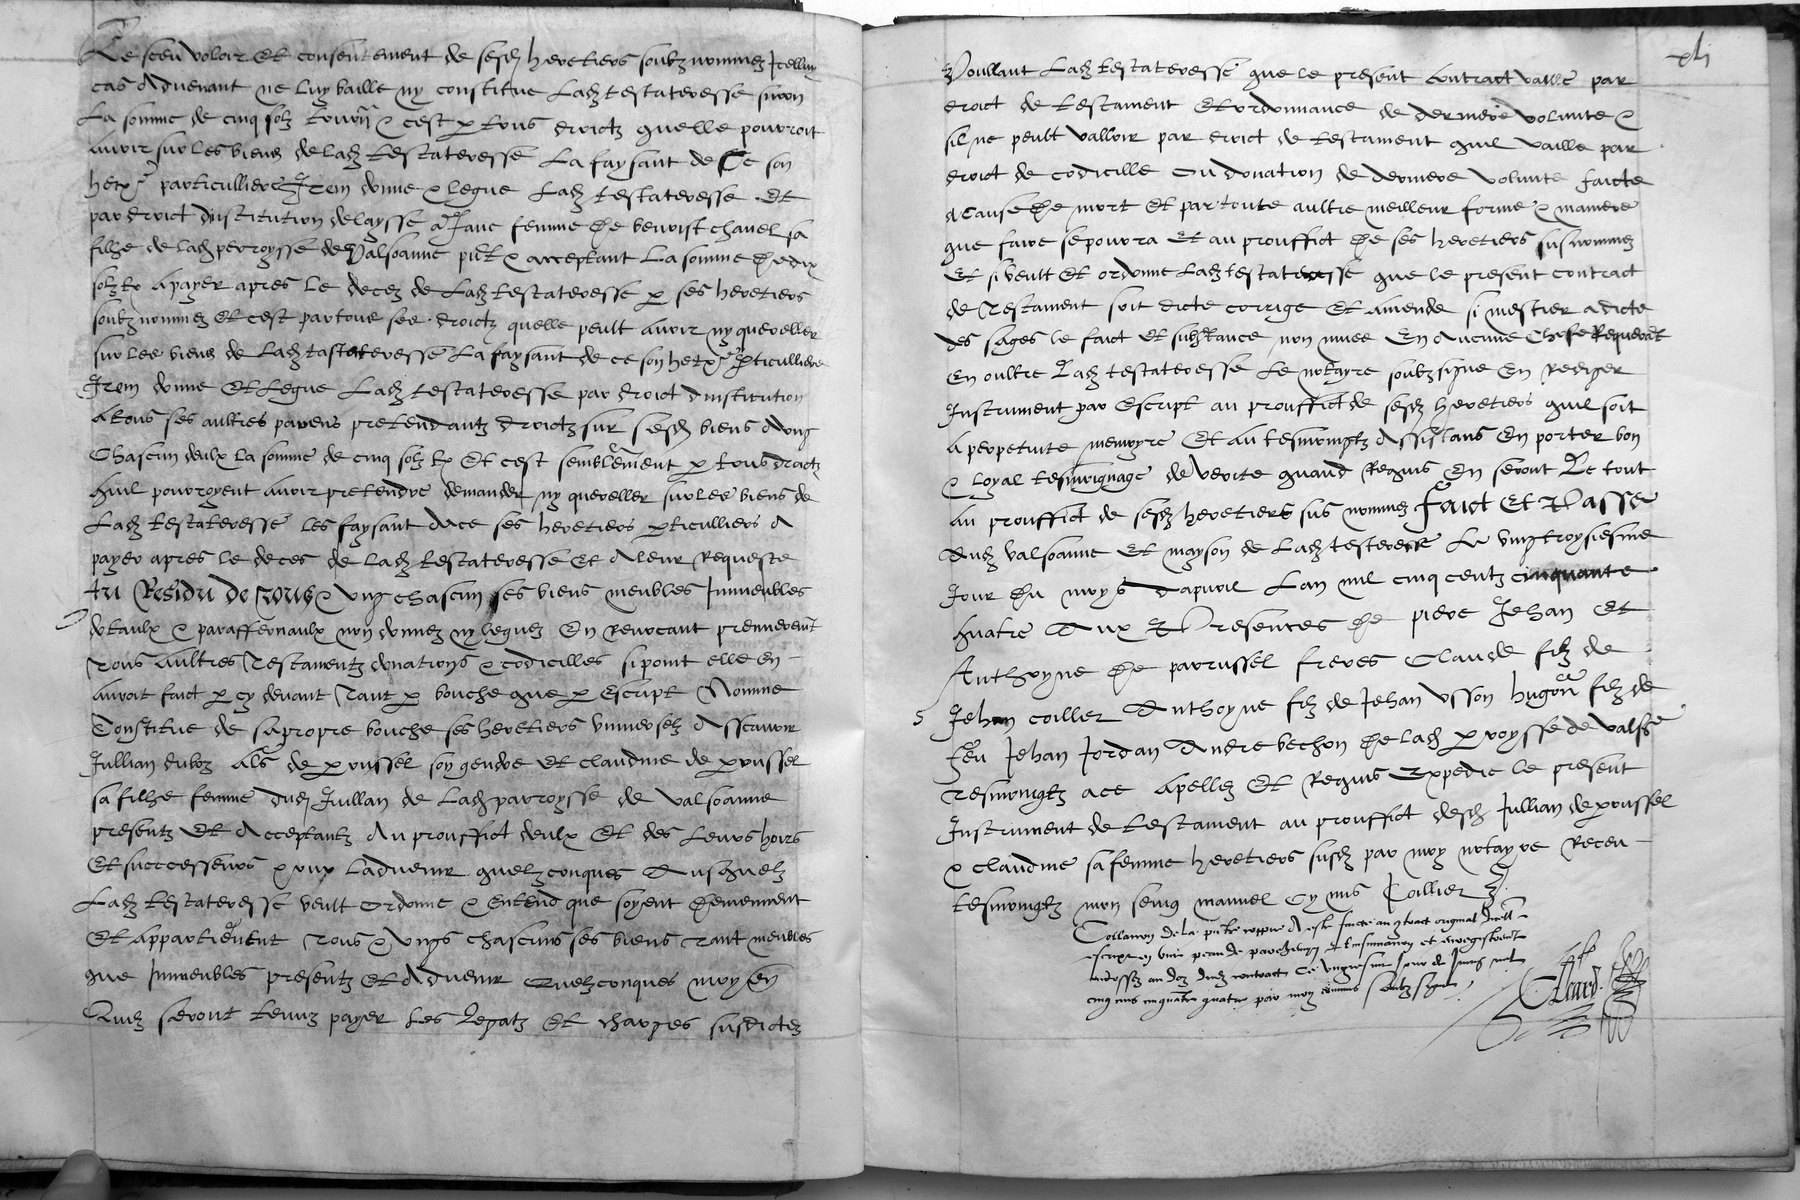 Le sceu voloir et consentement de sesd heretiers soubz nommez Icelluy
cas Advenant ne luy baille ny constitue Lad testateresse sinon
La somme de cinq solz tourn & cest p tous droictz quelle pourroit
avoir sur les biens de lad testateresse La faysant de Ce son
particulliere Item donne & legue Lad testateresse Et
par droict dinstitution delaysse a femme de benoist chanel sa
filhe de lad perroysse de Valsoanne & acceptant La somme de dix
solz tz Apayer apres le decez de Lad testateresse p ses heretiers
soubz nommez Et cest par tous ses droictz quelle peult avoir ny quereller
sur les biens de Lad testateresse La faysant de ce son particulliere
Item donne Et legue Lad testateresse par droict dinstitution
A tous ses aultres parens pretendantz droictz sur sesd biens A ung
Chascun deulx La somme de cinq solz tz Et cest semblement p tous droictz
quil pourroyent avoir pretendre demander ny quereller sur les biens de
Lad testateresse les faysant de ce ses heretiers pticulliers A
payer apres le deces de lad testateresse Et A leur Requeste
Au Residu de tous & ung chascun ses biens meubles Immeubles
dotaulx & paraffernaulx non donnez ny leguez En Revocant premierent
Tous Aultres Testamentz donations & codicilles si point elle en
auroit faict p cy devant Tant p bouche que p Escript Nomme
Constitue de sa propre bouche ses heretiers universelz Asscavoir
Jullian duboz Als de prussel son gendre Et claudine de prussel
sa filhe femme dud Jullian de Lad parroysse de valsoanne
presentz Et Acceptantz Au prouffict deulx Et des Leurs hoirs
Et successeurs & Ladvenir quelzconques Ausquelz
Lad testateresse veult Ordonne & Entend que soyent
Et appartienent Tous & Ungs chascuns ses biens Tant meubles
que Immeubles presentz Et Advenir Quelzconques moyen
Quilz seront tenuz payer les legatz Et charges susdictez
xli
Voullant Lad testateresse que le present contract vaille par
droict de testament Et ordonnance de derniere volunte &
sil ne peult valloir par droict de testament quil vaille par
droict de codicille ou donation de derniere volunte faicte
A Cause de mort Et par toute aultre meilleur forme & maniere
que faire se pourra Et au prouffict de ses heretiers susnommez
Et si veult Et ordonne Lad testateresse que le present contract
de Testament soit dicte corrige Et Amende si mestier a dicte
des sages le faict Et substance non muee En Aucune Chose Requerant
En oultre Lad testateresse Le notayre soubz signe En Rediger
Instrument par Escript au prouffict de sesd heretiers quil soit
A perpetute memoyre Et au tesmoingtz Assistans En porter bon
& loyal tesmoignage de verite quand Requis En seront Le tout
au prouffict de sesd heretiers sus nommez faict Et Passe
Aud Valsoanne Et mayson de Lad testeresse Le vingtroysiesme
Jour du moys dapvril Lan mil cinq centz cinquante
quatre Aux Presences de piere Jehan Et
Anthoyne de parrussel freres Claude filz de
Jehan coillier Anthoyne filz de Jehan Usson filz de
feu Jehan Jordan Andre bechon de lad proysse de valso
Tesmoingtz a ce Apellez Et Requis Expedie le present
Instrument de testament au prouffict desd Jullian de prussel
& claudine sa femme heretiers susd par moy notayre Receu
tesmoingtz mon seing manuel cy mis J Coillier
Collation de la pnte coppie A este faicte au contract original
escript en une peau de parchemyn et Linsinuation et enregistrement
endossez au doz dud contract Ce vingtiesme Jour de Juing mil
cinq cens cinquante quatre par moy commis soubz signe